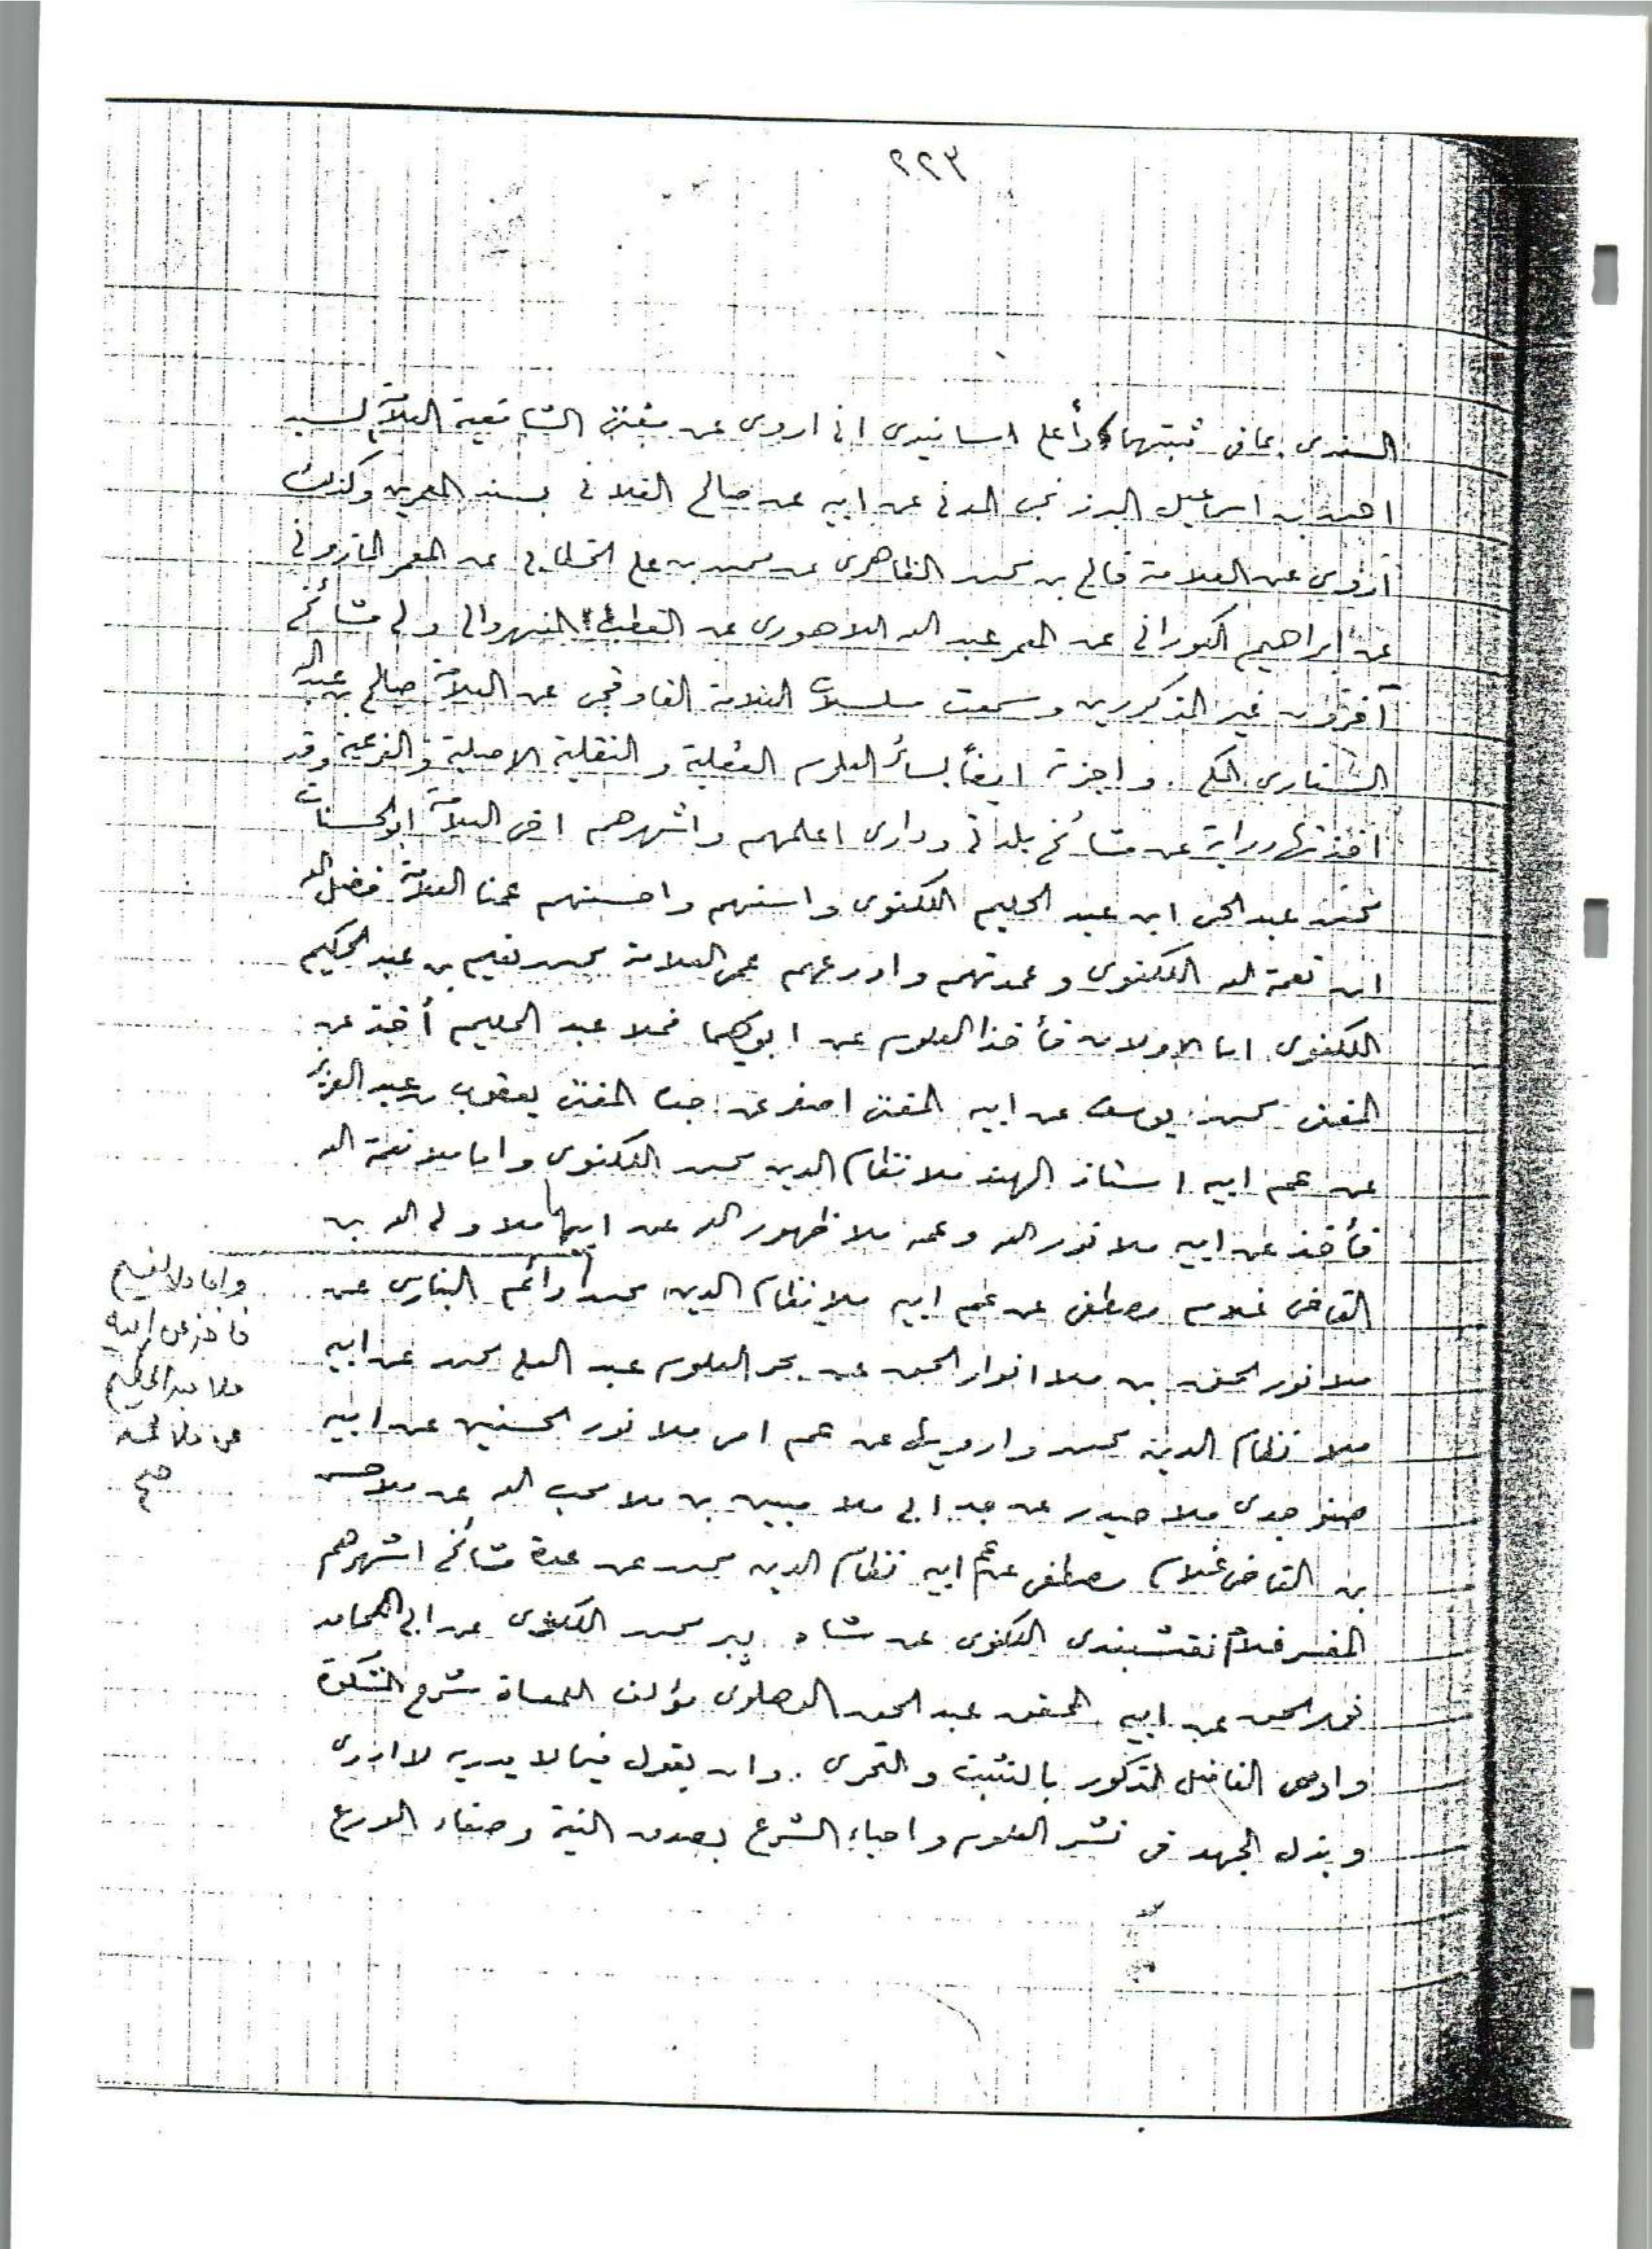 ٢٢٣
السندي بما في ثبتهما وأعلى اسانيدي اني اروي عن مفتي الشافعية العلامة السيد
احمد بن اسماعيل البرزنجي المدني عن ابيه عن صالح الفلاني بسند المعمرين وكذلك
اروي عن العلامة فالح بن محمد الظاهري عن محمد بن علي الخطابي عن المعمر المازوني
عن ابراهيم الكوراني عن المعمر عبد الله اللاهوري عن القطب النهروالي ولي مشائخ
آخرون غير المذكورين وسمعت مسلسلات العلامة القاوقجي عن العلامة صالح بن عبد الله
السناري المكي . واجزته ايضاً بسائر العلوم العقلية والنقلية الاصلية والفرعية وقد
اخذتها دراية عن مشائخ بلدتي وداري اعلمهم واشهرهم اخي العلامة ابو الحسنات
محمد عبد الحي ابن عبد الحليم اللكنوي واسنهم واحسنهم عمنا العلامة فضل الله
ابن نعمة الله اللكنوي وعمدتهم واورعهم عمي العلامة محمد نعيم بن عبد الحكيم
اللكنوي اما الاولان فأخذا العلوم عن ابويهما فملا عبد الحليم أخذ عن
المفتي محمد يوسف عن ابيه المفتي اصغر عن المفتي يعقوب بن عبد العزيز
عن عم ابيه استاذ الهند ملا نظام الدين محمد اللكنوي واما ملا نعمة الله
فأخذ عن ابيه ملا نور الله وعمه ملا ظهور الله عن ابيهما ملا ولي الله بن
القاضي غلام مصطفى عن عم ابيه ملا نظام الدين محمد وأعم البناري عن
ملا نور الحق بن ملا انوار الحق عن بحر العلوم عبد العلي محمد عن ابيه
ملا نظام الدين محمد وارويها عن عم امي ملا نور الحسنين عن ابيه
صنو جدي ملا حيدر عن جد ابي ملا مبين بن ملا محب الله عن ملا حسن
بن القاضي غلام مصطفى عن عم ابيه نظام الدين محمد عن عدة مشائخ اشهرهم
المفسر غلام نقشبندي اللكنوي عن شاه پير محمد اللكنوي عن ابي المحامد
نور الحق عن ابيه المحقق عبد الحق الدهلوي مؤلف اللمعات شرح المشكوة
واوصي الفاضل المذكور بالتثبت والتحري . وان يقول فيما لا يدريه لا ادري
وبذل الجهد في نشر العلوم واحياء الشرع بصدق النية وصفاء الورع
واما ملا نعيم
فاخذ عن ابيه
ملا عبد الحكيم
عن ملا
صح